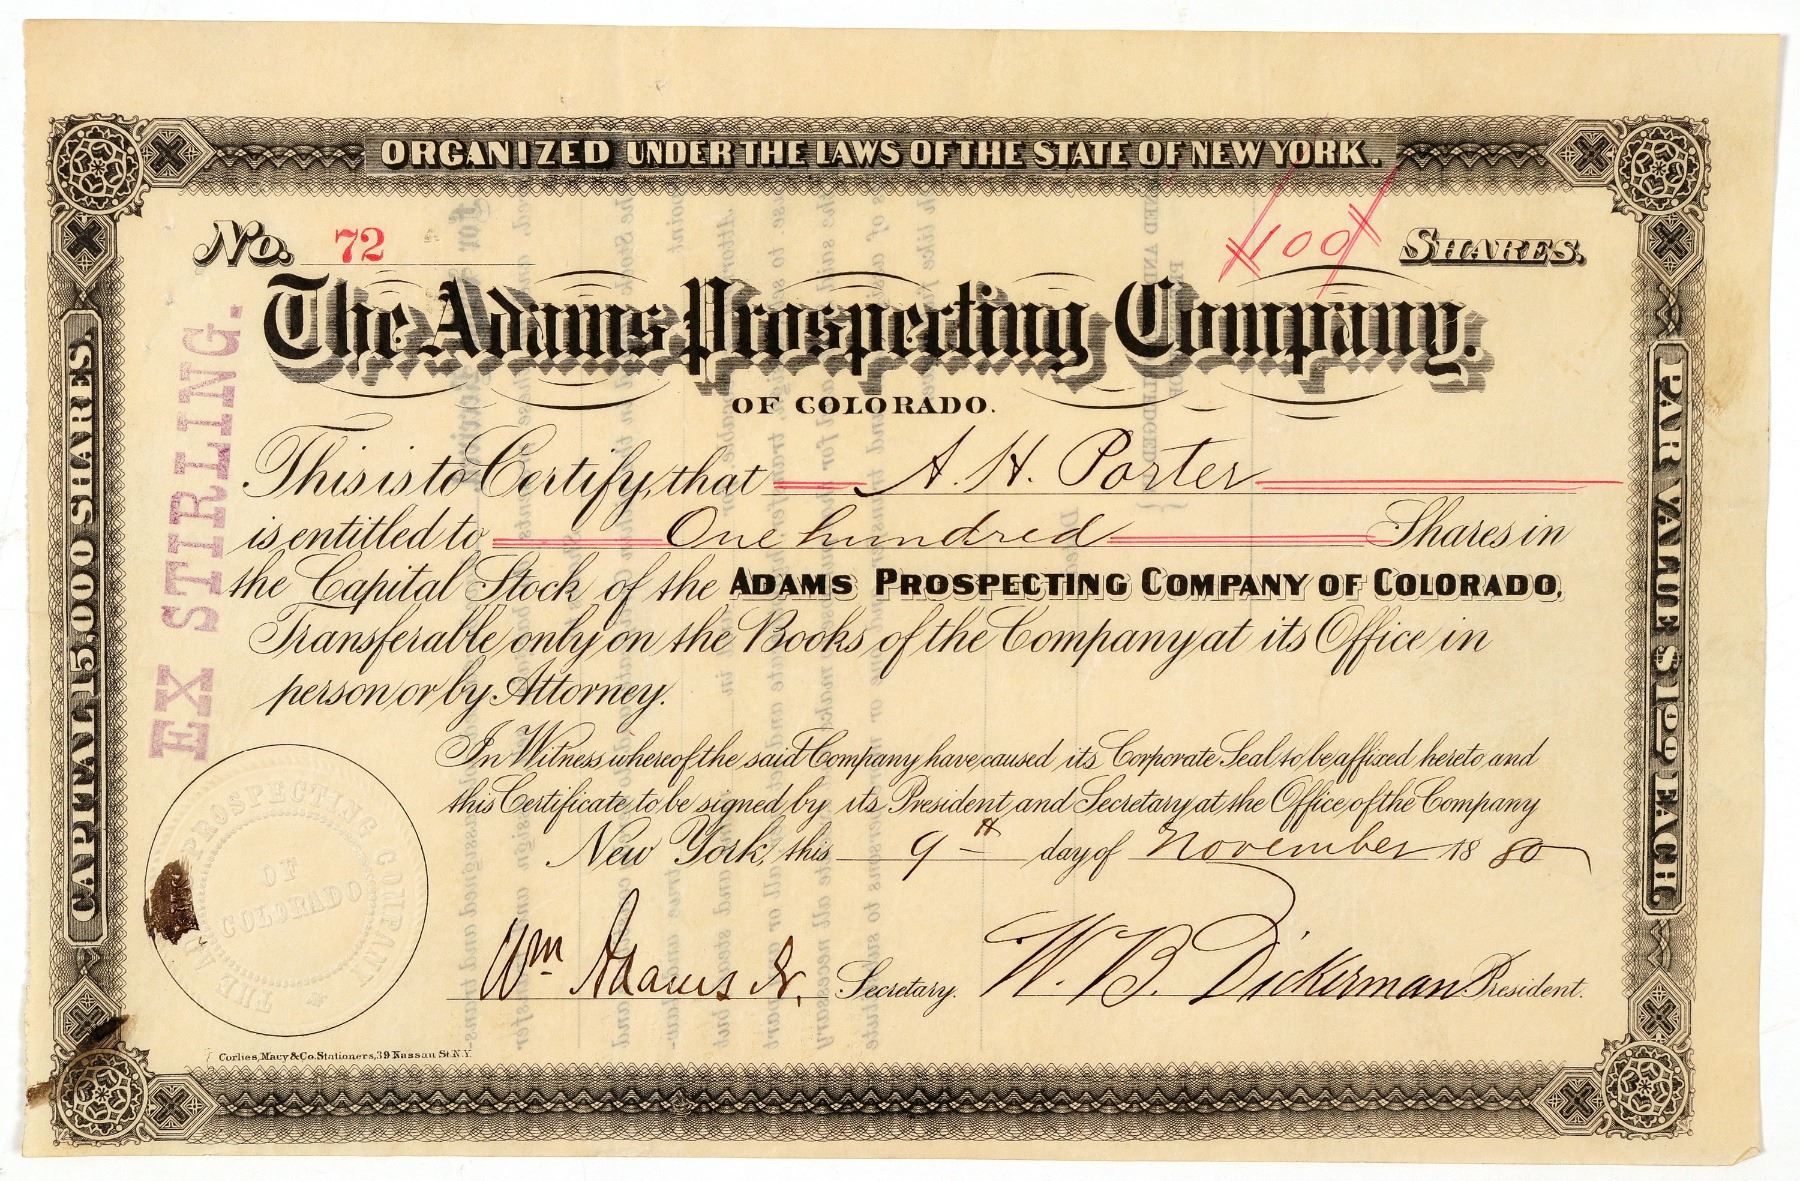 ORGANIZED UNDER THE LAWS OF THE STATE OF NEW YORK.
No. 72
100 SHARES.
The Adams Prospecting Company.
OF COLORADO.
This is to Certify, that A. H. Porter
is entitled to One hundred Shares in
the Capital Stock of the ADAMS PROSPECTING COMPANY OF COLORADO,
Transferable only on the Books of the Company at its Office in
person or by Attorney.
In Witness whereof the said Company have caused its Corporate Seal to be affixed hereto and
this Certificate to be signed by its President and Secretary at the Office of the Company
New York, this 9th day of November 1880
Wm Adams Jr. Secretary. W. B. Dickerman President.
Corlies, Macy & Co. Stationers, 39 Nassau St. N.Y.
CAPITAL 15,000 SHARES.
EX STIRLING.
PAR VALUE $100 EACH.
PROSPECTING COMPANY
OF
COLORADO
THE